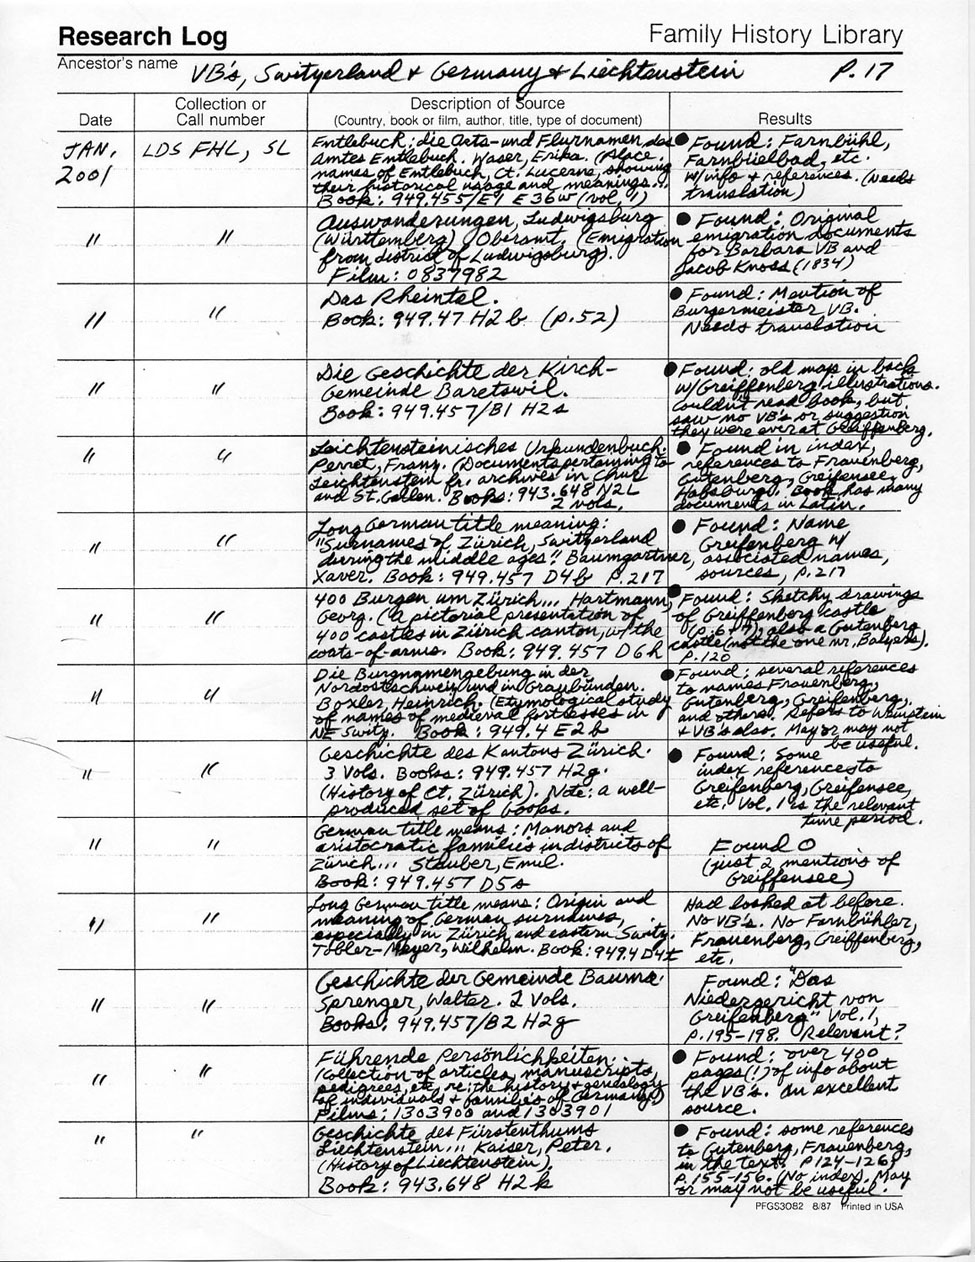 Research Log
Family History Library
Ancestor's name VB's, Switzerland + Germany + Liechtenstein P. 17
Date
Collection or
Call number
Description of Source
(Country, book or film, author, title, type of document)
Results
JAN.
2001
LDS FHL, SL
Entlebuch: die Orts- und Flurnamen des
Amtes Entlebuch. Waser, Erika. (Place
names of Entlebuch, Ct. Lucerne, showing
their historical usage and meanings.)
Book: 949.455/E1 E36w (vol. 1)
● Found: Farnbühl,
Farnbüelbad, etc.
w/info + references. (Needs
translation)
" "
Auswanderungen, Ludwigsburg
(Württemberg) Oberamt. (Emigration
from district of Ludwigsburg).
Film: 0837982
● Found: Original
emigration documents
for Barbara VB and
Jacob Knoss (1834)
" "
Das Rheintel.
Book: 949.47 H2b (p.52)
● Found: Mention of
Burgermeister VB.
Needs translation
" "
Die Geschichte der Kirch-
gemeinde Baretswil.
Book: 949.457/B1 H2s
● Found: old map in back
w/Greiffenberg illustrations.
Couldn't read book, but
saw no VB's or suggestion
they were ever at Greiffenberg.
" "
Leichtensteinisches Urkundenbuch.
Perret, Franz. (Documents pertaining to
Leichtenstein fr. archives in Chur
and St. Gallen. Books: 943.648 N2L
2 vols.
● Found in index,
references to Frauenberg,
Gutenberg, Greifensee,
Habsburg. Book has many
documents in Latin.
" "
Long German title meaning:
"Surnames of Zürich, Switzerland
during the middle ages". Baumgartner,
Xaver. Book: 949.457 D4b P.217
● Found: Name
Greifenberg w/
associated names,
sources, p.217
" "
400 Burgen um Zürich... Hartmann,
Georg. (A pictorial presentation of
400 castles in Zürich canton, w/ the
coats-of-arms. Book: 949.457 D6h
● Found: Sketchy drawings
of Greiffenberg castle
(p. 6+7), also a Gutenberg
castle (not the one nr. Balzers).
P. 120
" "
Die Burgnamengebung in der
Nordostschweiz und in Graubünden.
Boxler, Heinrich. (Etymological study
of names of medieval fortresses in
NE Switz. Book: 949.4 E2b
● Found: several references
to names Frauenberg,
Gutenberg, Greifenberg,
and others. Refers to Weinstein
+ VB's also. May or may not
be useful.
" "
Geschichte des Kantons Zürich.
3 Vols. Books: 949.457 H2g.
(History of Ct. Zürich). Note: a well-
produced set of books.
● Found: Some
index references to
Greifenberg, Greifensee,
etc. Vol. 1 is the relevant
time period.
" "
German title means: Manors and
aristocratic families in districts of
Zürich... Stauber, Emil.
Book: 949.457 D5s
Found 0
(just 2 mentions of
Greiffensee)
" "
Long German title means: Origin and
meaning of German surnames,
especially in Zürich and eastern Switz.
Tobler-Meyer, Wilhelm. Book: 949.4 D4t
Had looked at before.
No VB's. No Farnbühler,
Frauenberg, Greiffenberg,
etc.
" "
Geschichte der Gemeinde Bauma.
Sprenger, Walter. 2 Vols.
Books: 949.457/B2 H2g
Found: "Das
Niedergericht von
Greifenberg" Vol. 1,
P.195-198. Relevant?
" "
Führende Persönlichkeiten.
(Collection of articles, manuscripts,
pedigrees, etc. re: the history + genealogy
of individuals + families of Germany.)
Films: 1303900 and 1303901
● Found: over 400
pages (!) of info about
the VB's. An excellent
source.
" "
Geschichte des Fürstenthums
Liechtenstein... Kaiser, Peter.
(History of Liechtenstein).
Book: 943.648 H2k
● Found: some references
to Gutenberg, Frauenberg,
in the text. P 124-126;
P. 155-156. (No index). May
or may not be useful.
PFGS3082 8/87 Printed in USA